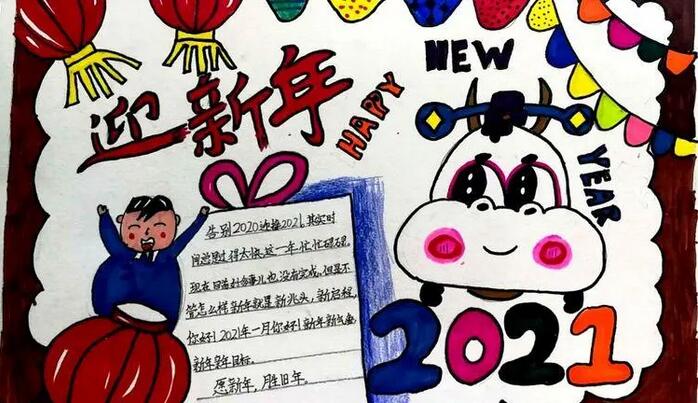 迎新年
HAPPY
NEW
YEAR
告别2020迎接2021。其实时
间总是过得太快。这一年,忙忙碌碌,
现在好多事儿也没有完成。但是不
管怎么样新年就是新兆头,新启程,
你好!2021年一月你好!新年新气象
新年新目标。
愿新年,胜旧年。
2021